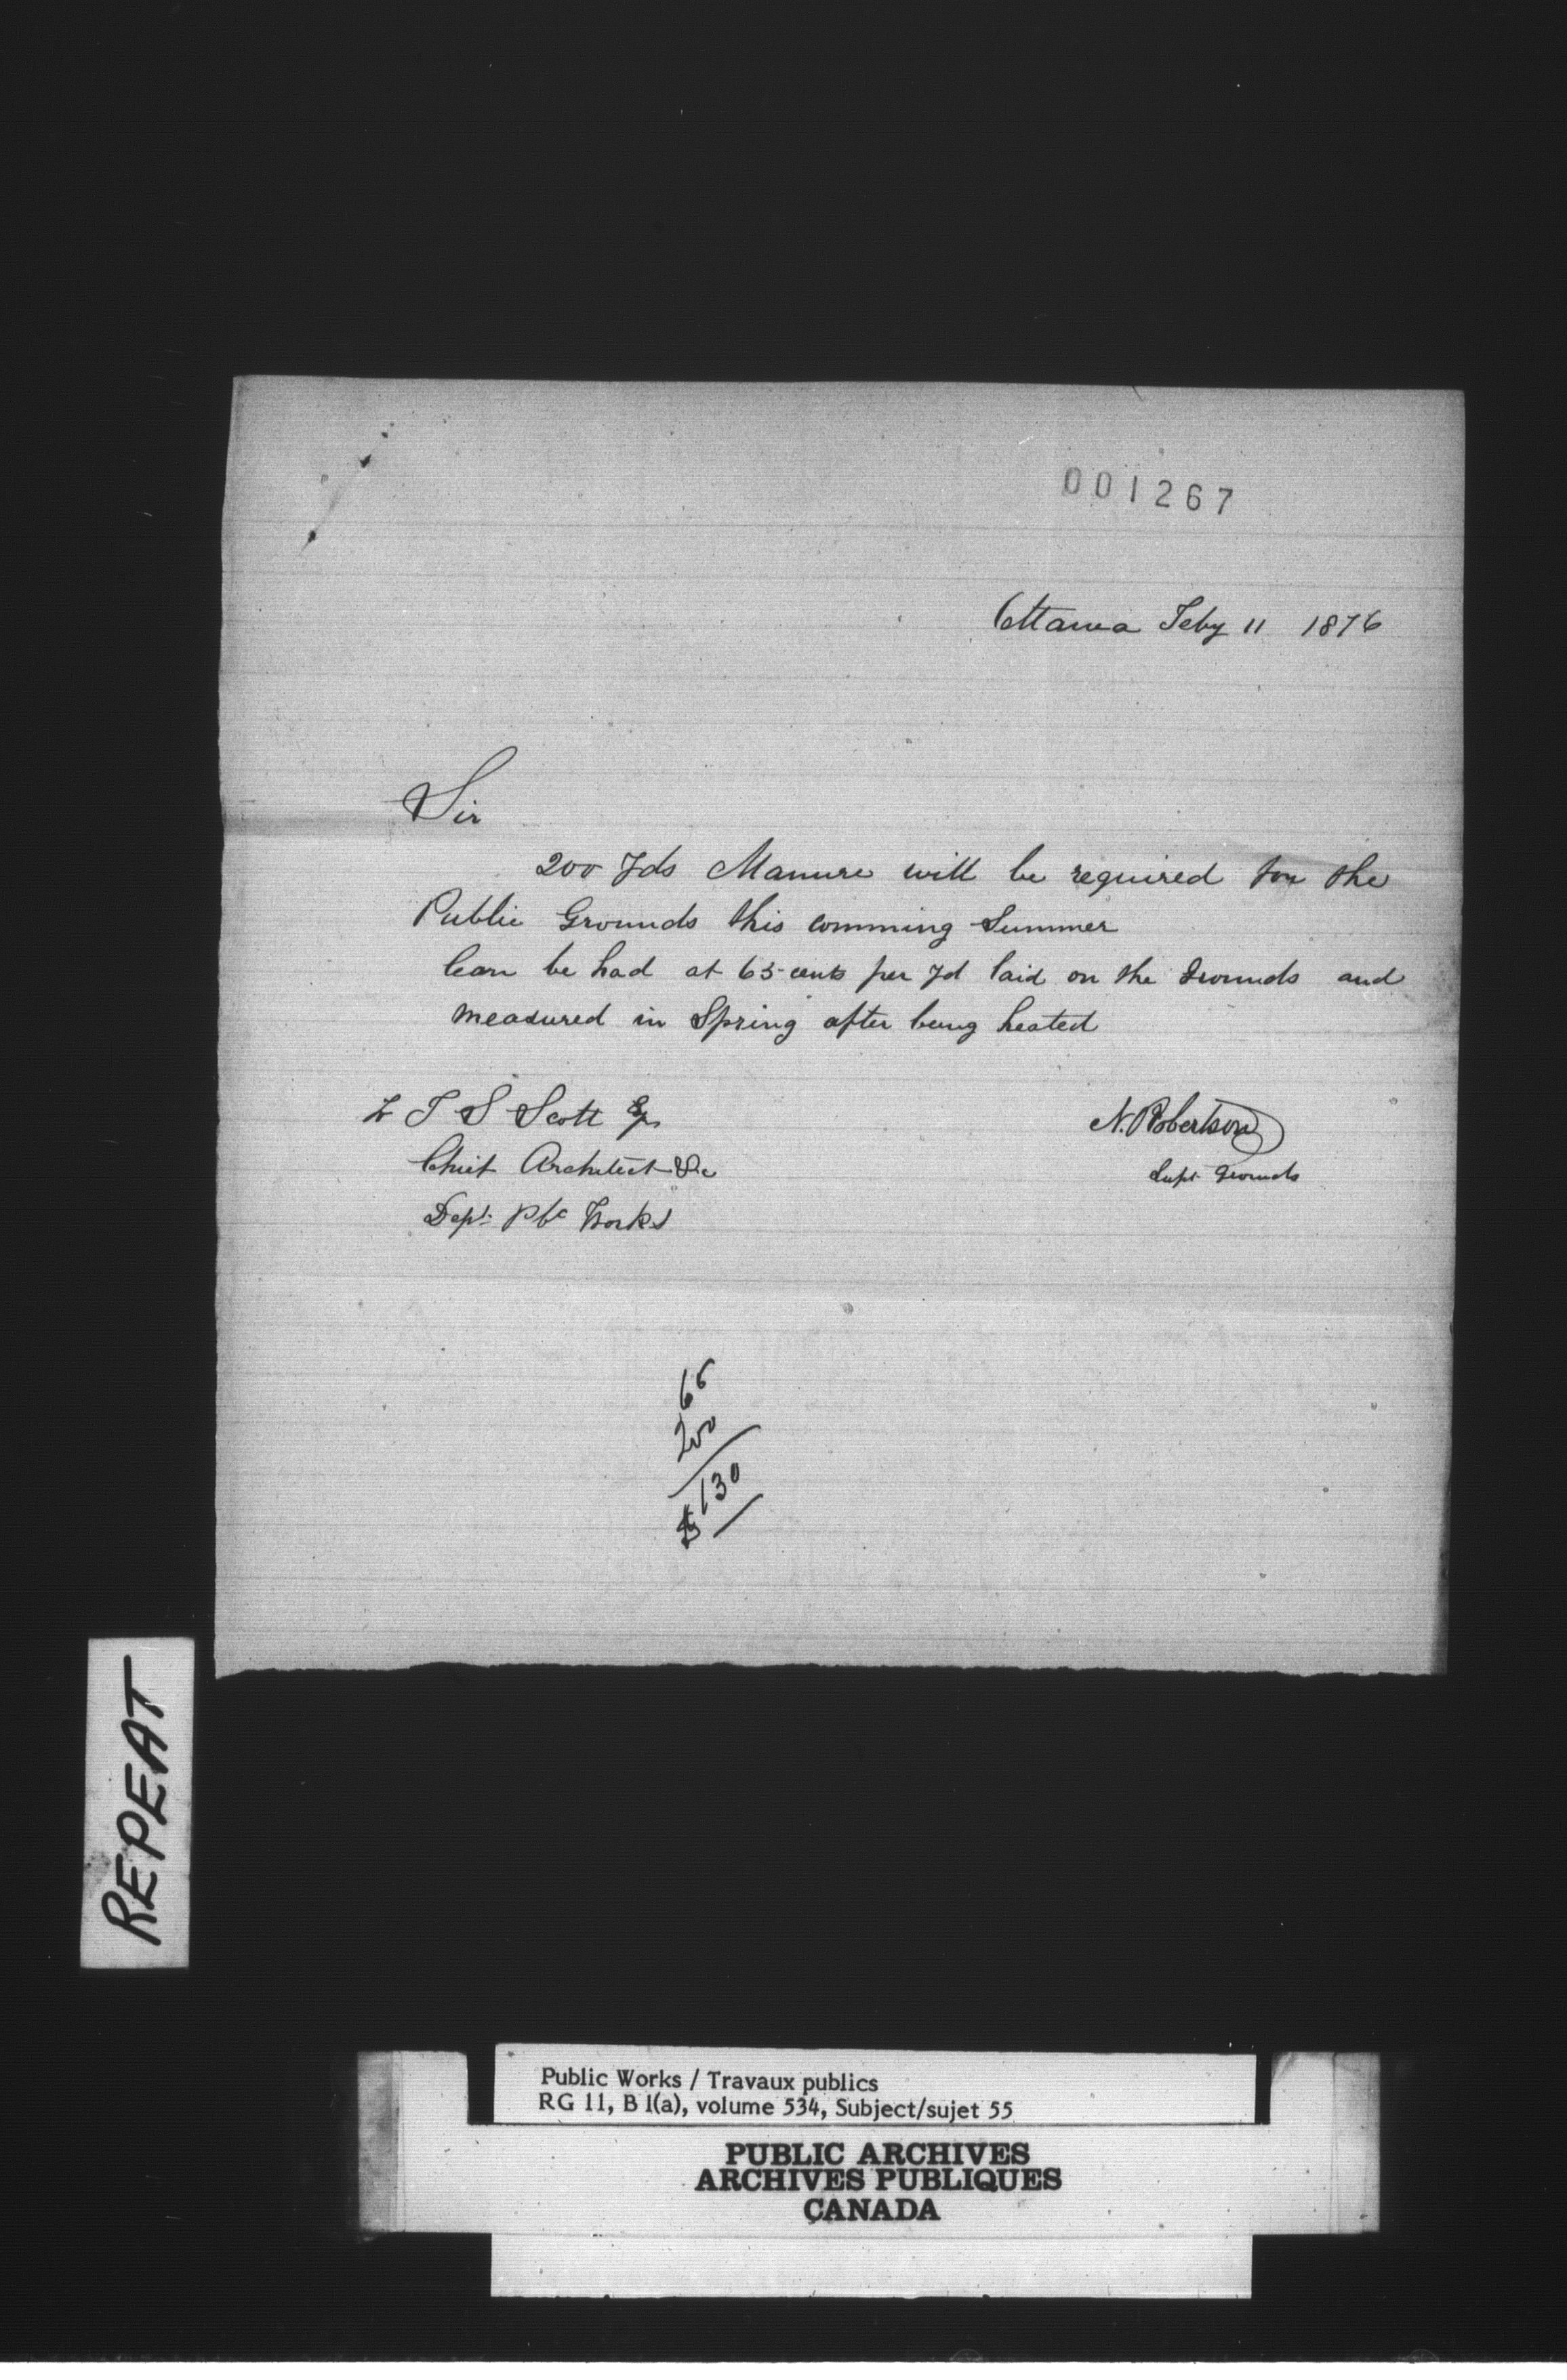 001267
Ottawa Feby 11 1876
Sir
200 Yds Manure will be required for the
Public Grounds this comming Summer
Can be had at 65 cents per Yd laid on the Grounds and
measured in Spring after being heated
To T S Scott Esq
Chief Architect &c
Dept. Pbc Works
N. Robertson
Supt. Grounds
65
200
$130
REPEAT
Public Works / Travaux publics
RG 11, B 1(a), volume 534, Subject/sujet 55
PUBLIC ARCHIVES
ARCHIVES PUBLIQUES
CANADA